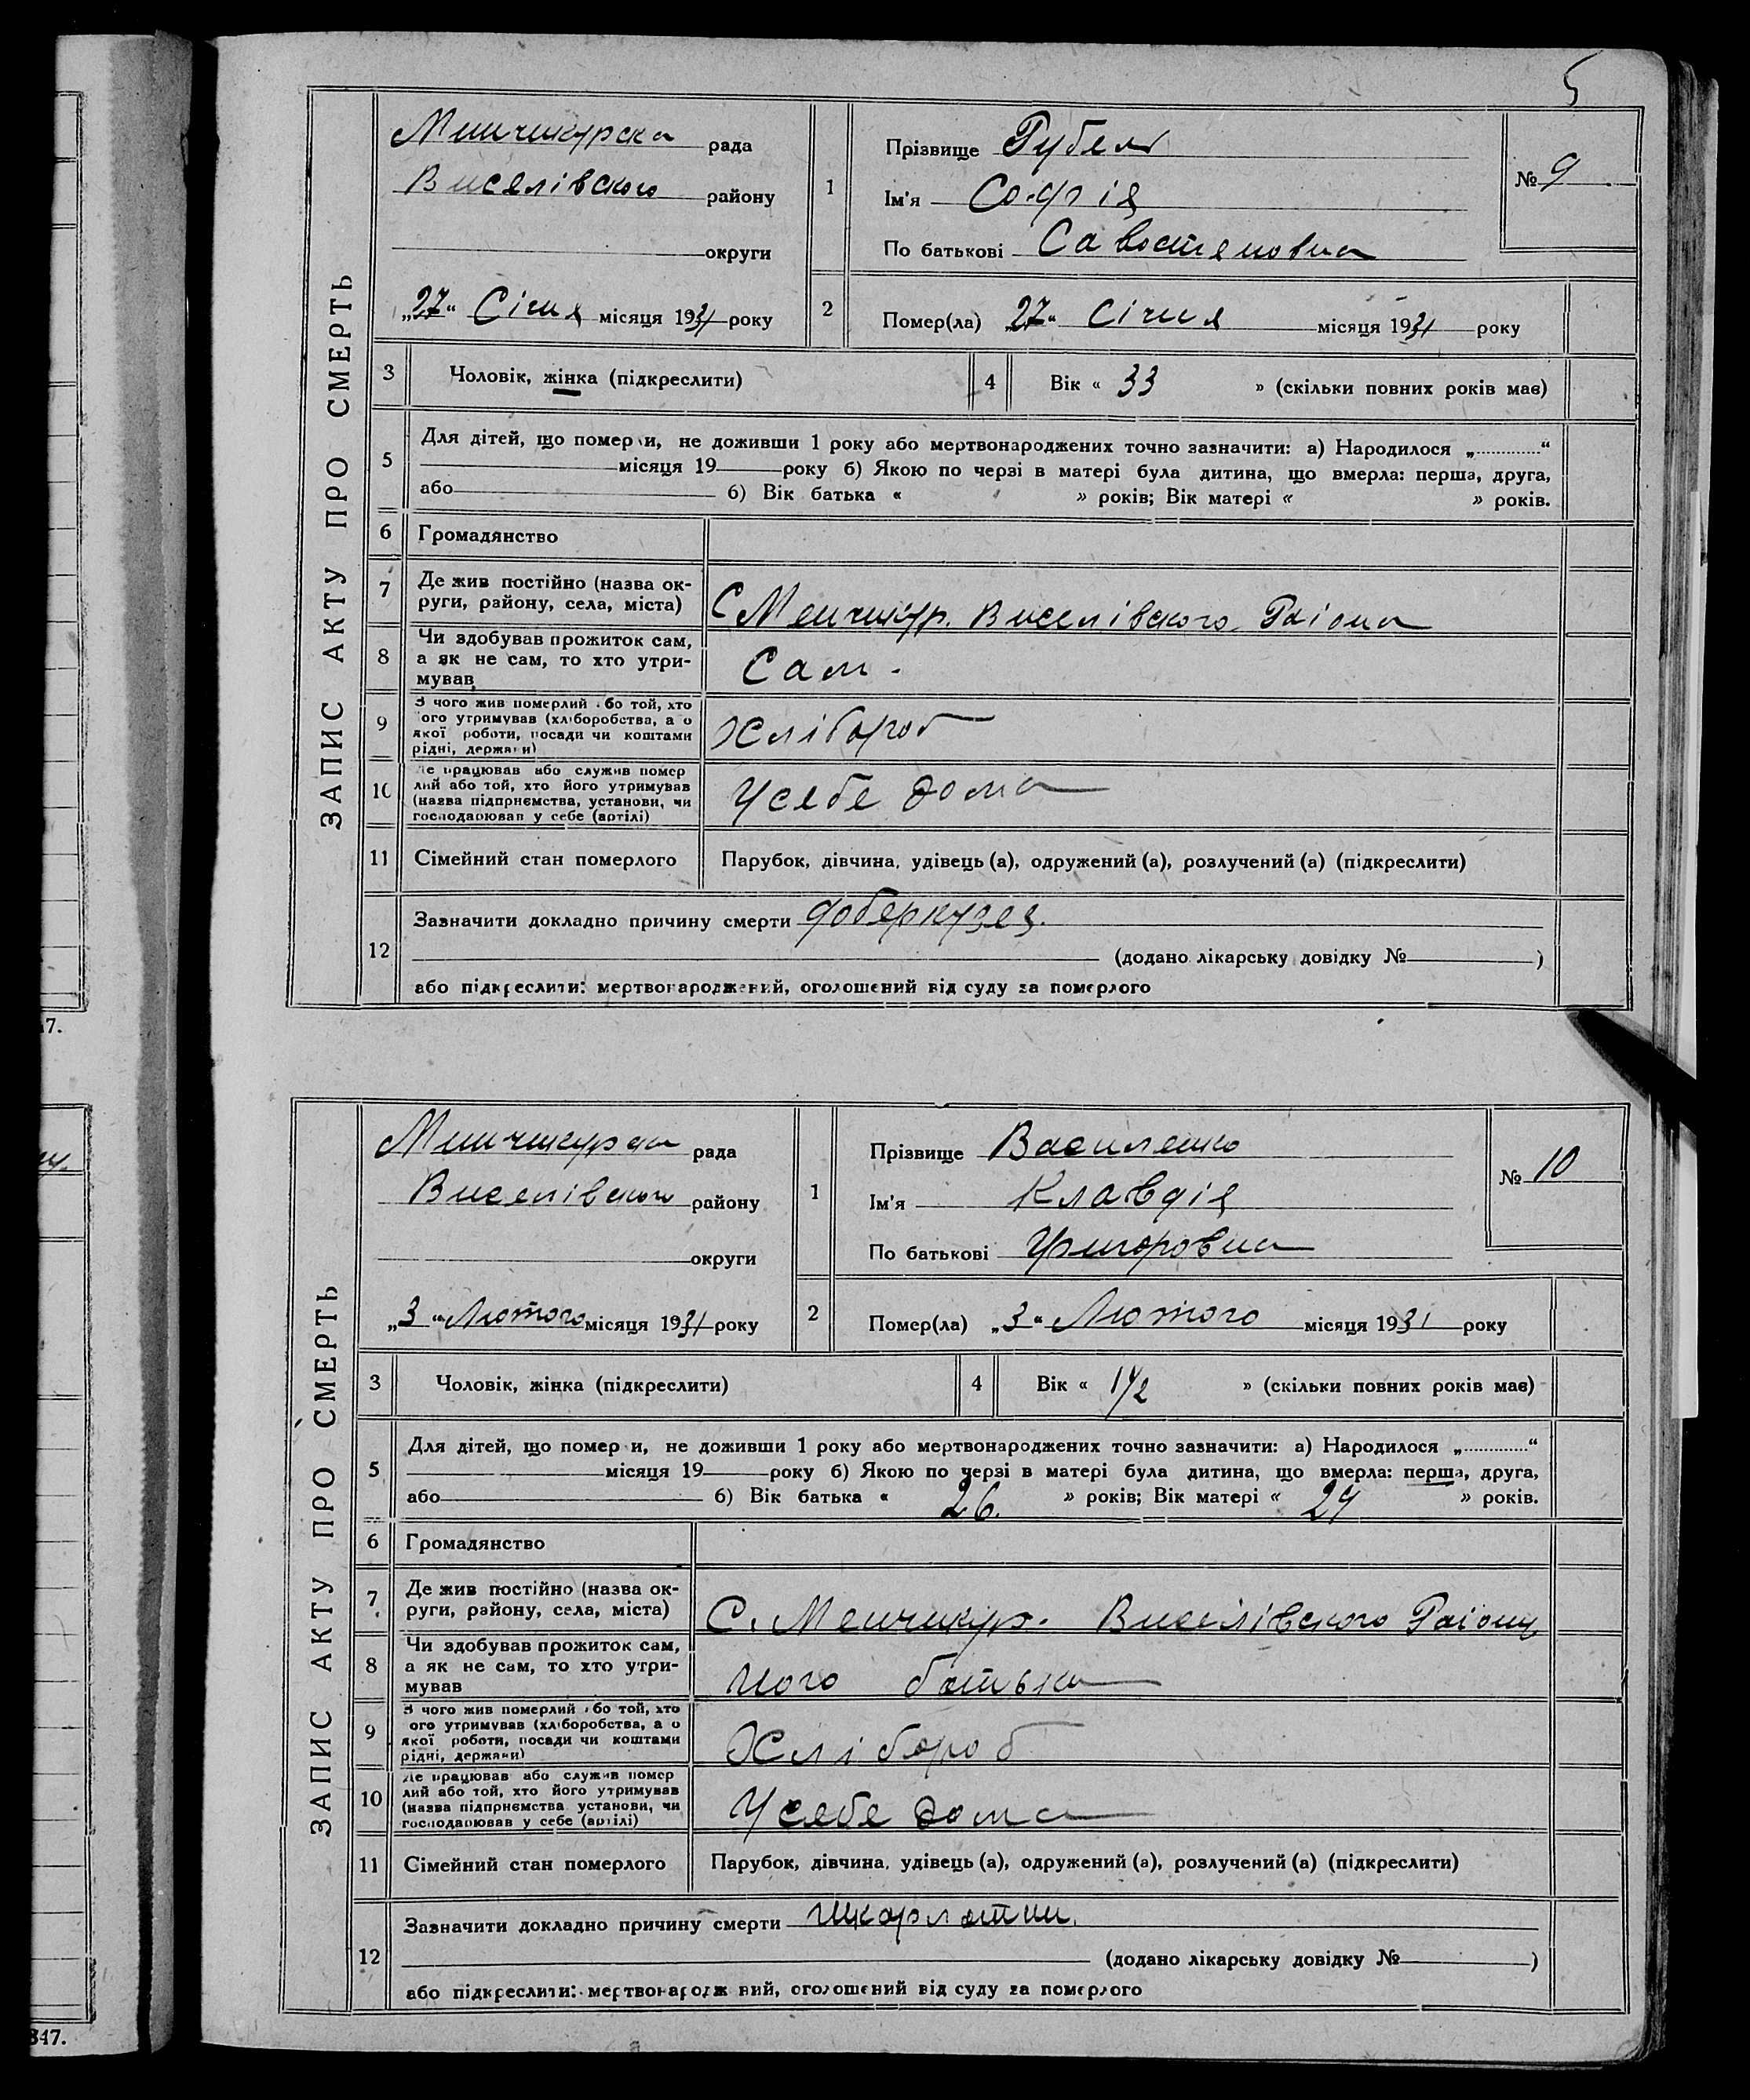 5
ЗАПИС АКТУ ПРО СМЕРТЬ
Минчикурска рада
Виселівского району
округи
„27“ Січня місяця 1931 року
1
Прізвище Рубель
Ім'я Софія
По батькові Савостяновна
№ 9
2
Помер(ла) „27“ Січня місяця 1931 року
3 Чоловік, жінка (підкреслити)
4 Вік « 33 » (скільки повних років має)
5 Для дітей, що помер и, не доживши 1 року або мертвонароджених точно зазначити: а) Народилося „............“
місяця 19 року б) Якою по черзі в матері була дитина, що вмерла: перша, друга,
або 6) Вік батька « » років; Вік матері « » років.
6 Громадянство
7 Де жив постійно (назва ок-
руги, району, села, міста) С Менчикур. Виселівского Раіона
8 Чи здобував прожиток сам,
а як не сам, то хто утри-
мував Сам.
9 З чого жив померлий або той, хто
ого утримував (хліборобства, а о
якої роботи, посади чи коштами
рідні, держави) Хлібороб
10 Де працював або служив помер
лий або той, хто його утримував
(назва підприємства, установи, чи
господарював у себе (артілі) У себе дома
11 Сімейний стан померлого Парубок, дівчина, удівець (а), одружений (а), розлучений (а) (підкреслити)
12 Зазначити докладно причину смерти
(додано лікарську довідку № )
або підкреслити: мертвонароджений, оголошений від суду за померлого
7.
ЗАПИС АКТУ ПРО СМЕРТЬ
Минчикурска рада
Виселівского району
округи
„3“ Лютого місяця 1931 року
1
Прізвище Василенко
Ім'я Клавдія
По батькові Григоровна
№ 10
2
Помер(ла) „3“ Лютого місяця 1931 року
3 Чоловік, жінка (підкреслити)
4 Вік « 1 1/2 » (скільки повних років має)
5 Для дітей, що помер и, не доживши 1 року або мертвонароджених точно зазначити: а) Народилося „............“
місяця 19 року б) Якою по черзі в матері була дитина, що вмерла: перша, друга,
або 6) Вік батька « 26. » років; Вік матері « 24 » років.
6 Громадянство
7 Де жив постійно (назва ок-
руги, району, села, міста) С. Менчикур. Виселівского Раіону
8 Чи здобував прожиток сам,
а як не сам, то хто утри-
мував його батька
9 З чого жив померлий або той, хто
ого утримував (хліборобства, а о
якої роботи, посади чи коштами
рідні, держави) Хлібороб
10 Де працював або служив помер
лий або той, хто його утримував
(назва підприємства установи, чи
господарював у себе (артілі) У себе дома
11 Сімейний стан померлого Парубок, дівчина, удівець (а), одружений (а), розлучений (а) (підкреслити)
12 Зазначити докладно причину смерти Шкарлатин.
(додано лікарську довідку № )
або підкреслити: мертвонародж ний, оголошений від суду за померлого
347.